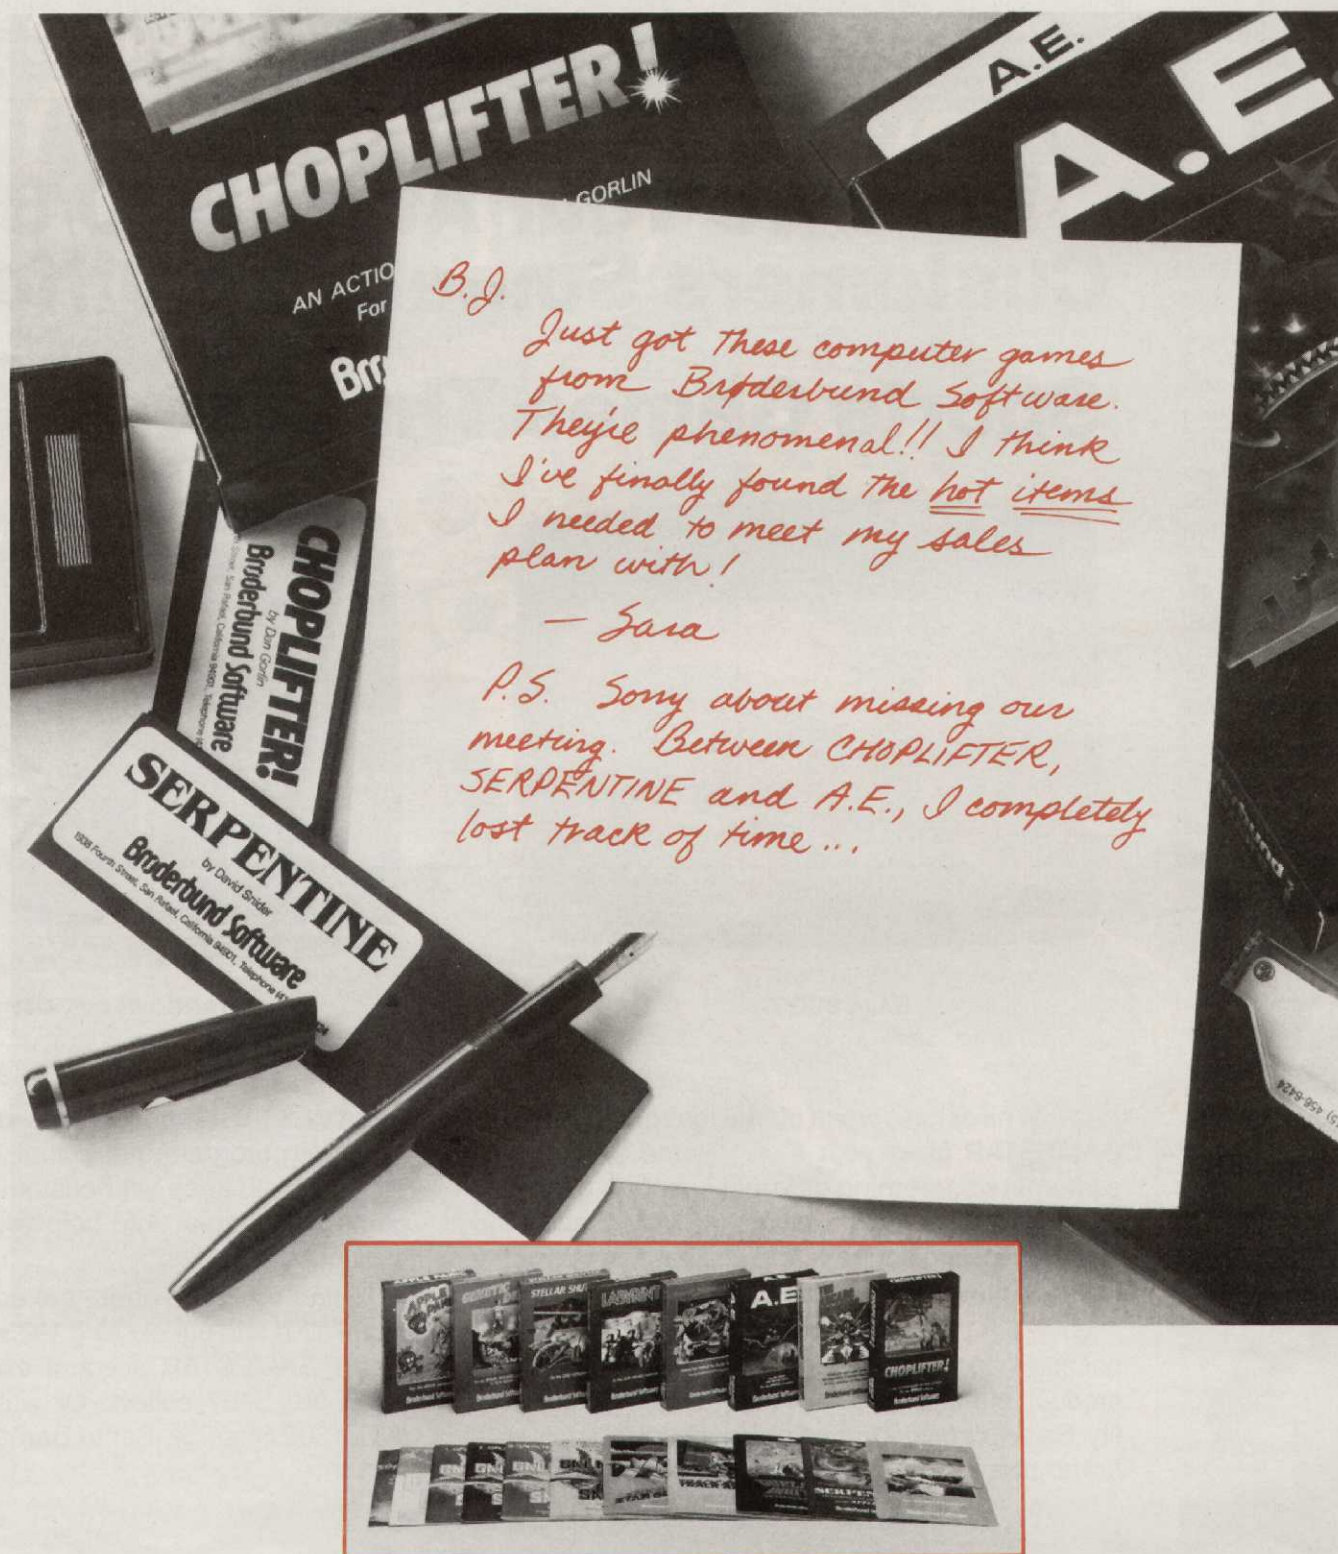 CHOPLIFTER!
GORLIN
AN ACTIO
For
Brø
A.E.
A.E
B.J.
Just got these computer games
from Brøderbund Software.
They're phenomenal!! I think
I've finally found the hot items
I needed to meet my sales
plan with!
— Sara
P.S. Sorry about missing our
meeting. Between CHOPLIFTER,
SERPENTINE and A.E., I completely
lost track of time...
CHOPLIFTER!
by Dan Gorlin
Brøderbund Software
Street, San Rafael, California 94901, Telephone
SERPENTINE
by David Snider
Brøderbund Software
1938 Fourth Street, San Rafael, California 94901, Telephone
5) 456-6424
APPLE
GENETIC
STELLAR SHU
LABYRINT
A.E
CHOPLIFTER!
Brøderbund Software
SERPEN